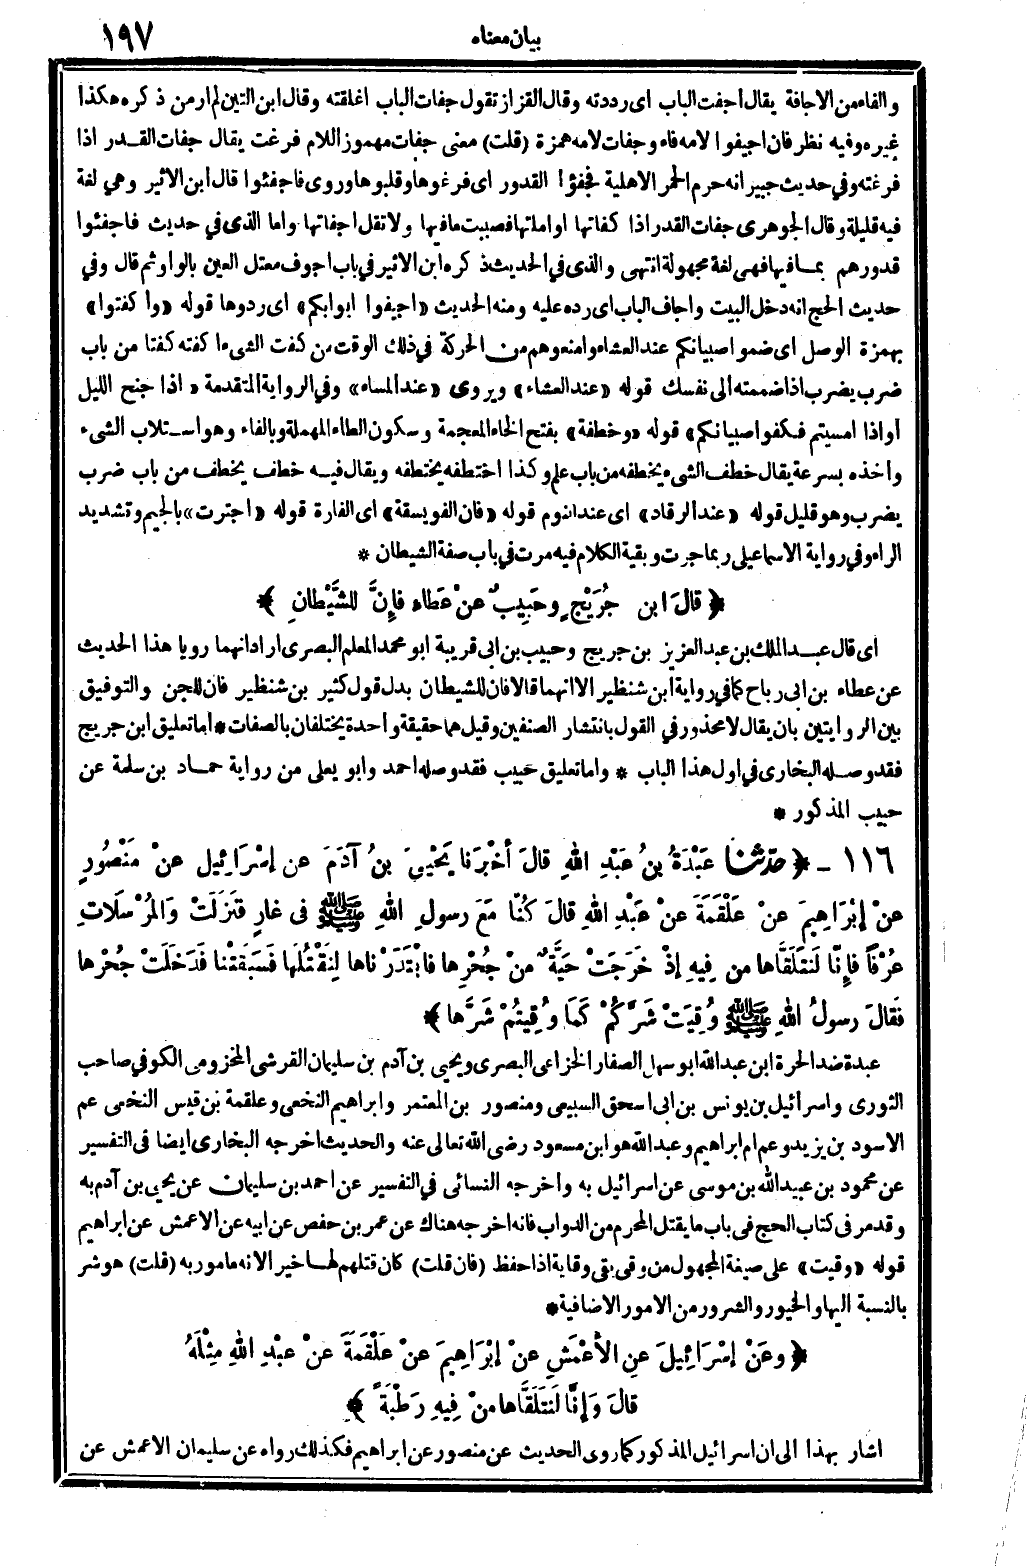 بيان معناه ١٩٧
والفاء من الاجافة يقال اجفت الباب اى رددته وقال القزاز تقول جفات الباب اغلقته وقال ابن التين لم ار من ذكره هكذا
غيره وفيه نظر فان اجيفوا لامه فاء وجفات لامه همزة (قلت) معنى جفات مهموز اللام فرغت يقال جفات القدر اذا
فرغته وفي حديث جبير انه حرم الحمر الاهلية فجفؤا القدور اى فرغوها وقلبوها وروى فاجفئوا قال ابن الاثير وهي لغة
فيه قليلة وقال الجوهرى جفات القدر اذا كفاتها او املتها فصببت مافيها ولا تقل اجفاتها واما الذى في حديث فاجفئوا
قدورهم بما فيها فهى لغة مجهولة انتهى والذى في الحديث ذكره ابن الاثير في باب اجوف معتل العين بالواو ثم قال وفي
حديث الحج انه دخل البيت واجاف الباب اى رده عليه ومنه الحديث «اجيفوا ابوابكم» اى ردوها قوله «وا كفتوا»
بهمزة الوصل اى ضموا صبيانكم عند العشاء وامنعوهم من الحركة في ذلك الوقت من كفت الشىء اكفته كفتا من باب
ضرب يضرب اذا ضممته الى نفسك قوله «عند العشاء» ويروى «عند المساء» وفي الرواية المتقدمة «اذا جنح الليل
أو اذا امسيتم فكفوا صبيانكم» قوله «وخطفة» بفتح الخاء المعجمة وسكون الطاء المهملة وبالفاء وهو استلاب الشىء
واخذه بسرعة يقال خطف الشىء يخطفه من باب علم وكذا اختطفه يختطفه ويقال فيه خطف يخطف من باب ضرب
يضرب وهو قليل قوله «عند الرقاد» اى عند النوم قوله «فان الفويسقة» اى الفارة قوله «اجترت» بالجيم وتشديد
الراء وفي رواية الاسماعيلى ربما جرت وبقية الكلام فيه مرت في باب صفة الشيطان *
﴿ قالَ ابن جُرَيْجٍ وحَبِيبٌ عنْ عَطاء فإِنَّ لِلشَّيْطانِ ﴾
اى قال عبد الملك بن عبد العزيز بن جريج وحبيب بن ابى قريبة ابو محمد المعلم البصرى اراد انهما رويا هذا الحديث
عن عطاء بن ابى رباح كما في رواية ابن شنظير الا انهما قالا فان للشيطان بدل قول كثير بن شنظير فان للجن والتوفيق
بين الروايتين بان يقال لا محذور في القول بانتشار الصنفين وقيل هما حقيقة واحدة يختلفان بالصفات * أما تعليق ابن جريج
فقد وصله البخارى في اول هذا الباب * واما تعليق حبيب فقد وصله احمد وابو يعلى من رواية حماد بن سلمة عن
حبيب المذكور *
١١٦ - ﴿ حدّثنا عَبْدَةُ بنُ عَبْدِ اللهِ قالَ أخْبَرَنا يَحْيىَ بنُ آدَمَ عن إسْرَائِيل عنْ مَنْصُورٍ
عنْ إبْرَاهِيمَ عنْ عَلْقَمَةَ عنْ عَبْدِ اللهِ قالَ كُنَّا مَعَ رسولِ اللهِ ﷺ فى غارٍ فنَزَلَتْ وَالمُرْسَلاَتِ
عُرْفاً فإِنَّا لَنتَلَقَّاها من فِيهِ إذْ خَرَجَتْ حَيَّةٌ منْ جُحْرِها فابْتَدَرْناها لِنَقْتُلَها فَسَبَقَتْنا فَدَخَلَتْ جُحْرَها
فَقالَ رسولُ اللهِ ﷺ وُقِيَتْ شَرَّكُمْ كَمَا وُقِيتُمْ شَرَّها ﴾
عبدة ضد الحرة ابن عبد الله ابو سهل الصفار الخزاعى البصرى ويحيى بن آدم بن سليمان القرشى المخزومى الكوفي صاحب
الثورى واسرائيل بن يونس بن ابى اسحق السبيعى ومنصور بن المعتمر وابراهيم النخعى وعلقمة بن قيس النخعى عم
الاسود بن يزيد وعم ام ابراهيم وعبد الله هو ابن مسعود رضى الله تعالى عنه والحديث اخرجه البخارى ايضا فى التفسير
عن محمود بن عبيد الله بن موسى عن اسرائيل به واخرجه النسائى في التفسير عن احمد بن سليمان عن يحيى بن آدم به
وقد مر فى كتاب الحج فى باب ما يقتل المحرم من الدواب فانه اخرجه هناك عن عمر بن حفص عن ابيه عن الاعمش عن ابراهيم
قوله «وقيت» على صيغة المجهول من وقى يقى وقاية اذا حفظ (فان قلت) كان قتلهم لها خير الانه مامور به (قلت) هو شر
بالنسبة اليها والخيور والشرور من الامور الاضافية *
﴿ وعَنْ إسْرَائِيلَ عنِ الأَعْمَشِ عنْ إبْرَاهِيمَ عنْ عَلْقَمَةَ عنْ عبْدِ اللهِ مِثْلَهُ
قالَ وَإنَّا لَنَتَلَقَّاها منْ فِيهِ رَطْبَةً ﴾
اشار بهذا الى ان اسرائيل المذكور كما روى الحديث عن منصور عن ابراهيم فكذلك رواه عن سليمان الاعمش عن